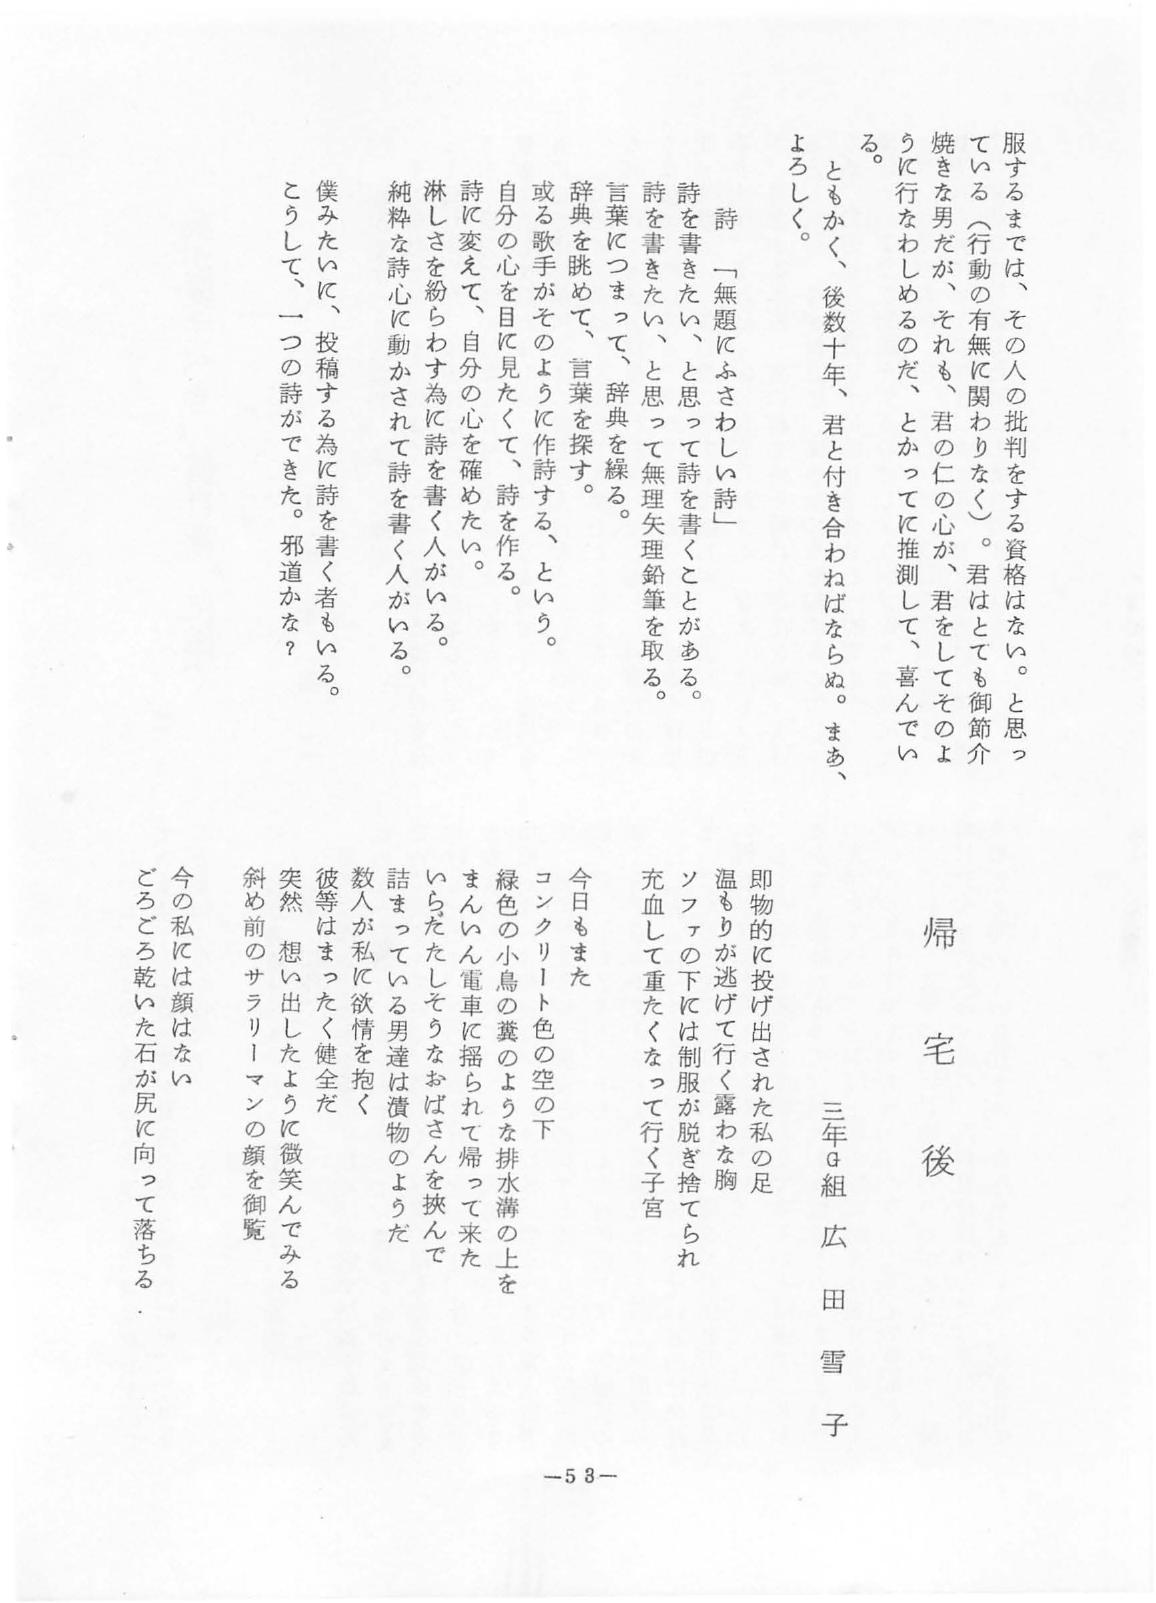 服するまでは、その人の批判をする資格はない。と思っ
ている（行動の有無に関わりなく）。君はとても御節介
焼きな男だが、それも、君の仁の心が、君をしてそのよ
うに行なわしめるのだ、とかってに推測して、喜んでい
る。
ともかく、後数十年、君と付き合わねばならぬ。まあ、
よろしく。
詩　「無題にふさわしい詩」
詩を書きたい、と思って詩を書くことがある。
詩を書きたい、と思って無理矢理鉛筆を取る。
言葉につまって、辞典を繰る。
辞典を眺めて、言葉を探す。
或る歌手がそのように作詩する、という。
自分の心を目に見たくて、詩を作る。
詩に変えて、自分の心を確めたい。
淋しさを紛らわす為に詩を書く人がいる。
純粋な詩心に動かされて詩を書く人がいる。
僕みたいに、投稿する為に詩を書く者もいる。
こうして、一つの詩ができた。邪道かな？
帰宅後
三年G組　広田雪子
即物的に投げ出された私の足
温もりが逃げて行く露わな胸
ソファの下には制服が脱ぎ捨てられ
充血して重たくなって行く子宮
今日もまた
コンクリート色の空の下
緑色の小鳥の糞のような排水溝の上を
まんいん電車に揺られて帰って来た
いらだたしそうなおばさんを挾んで
詰まっている男達は漬物のようだ
数人が私に欲情を抱く
彼等はまったく健全だ
突然　想い出したように微笑んでみる
斜め前のサラリーマンの顔を御覧
今の私には顔はない
ごろごろ乾いた石が尻に向って落ちる.
—53—